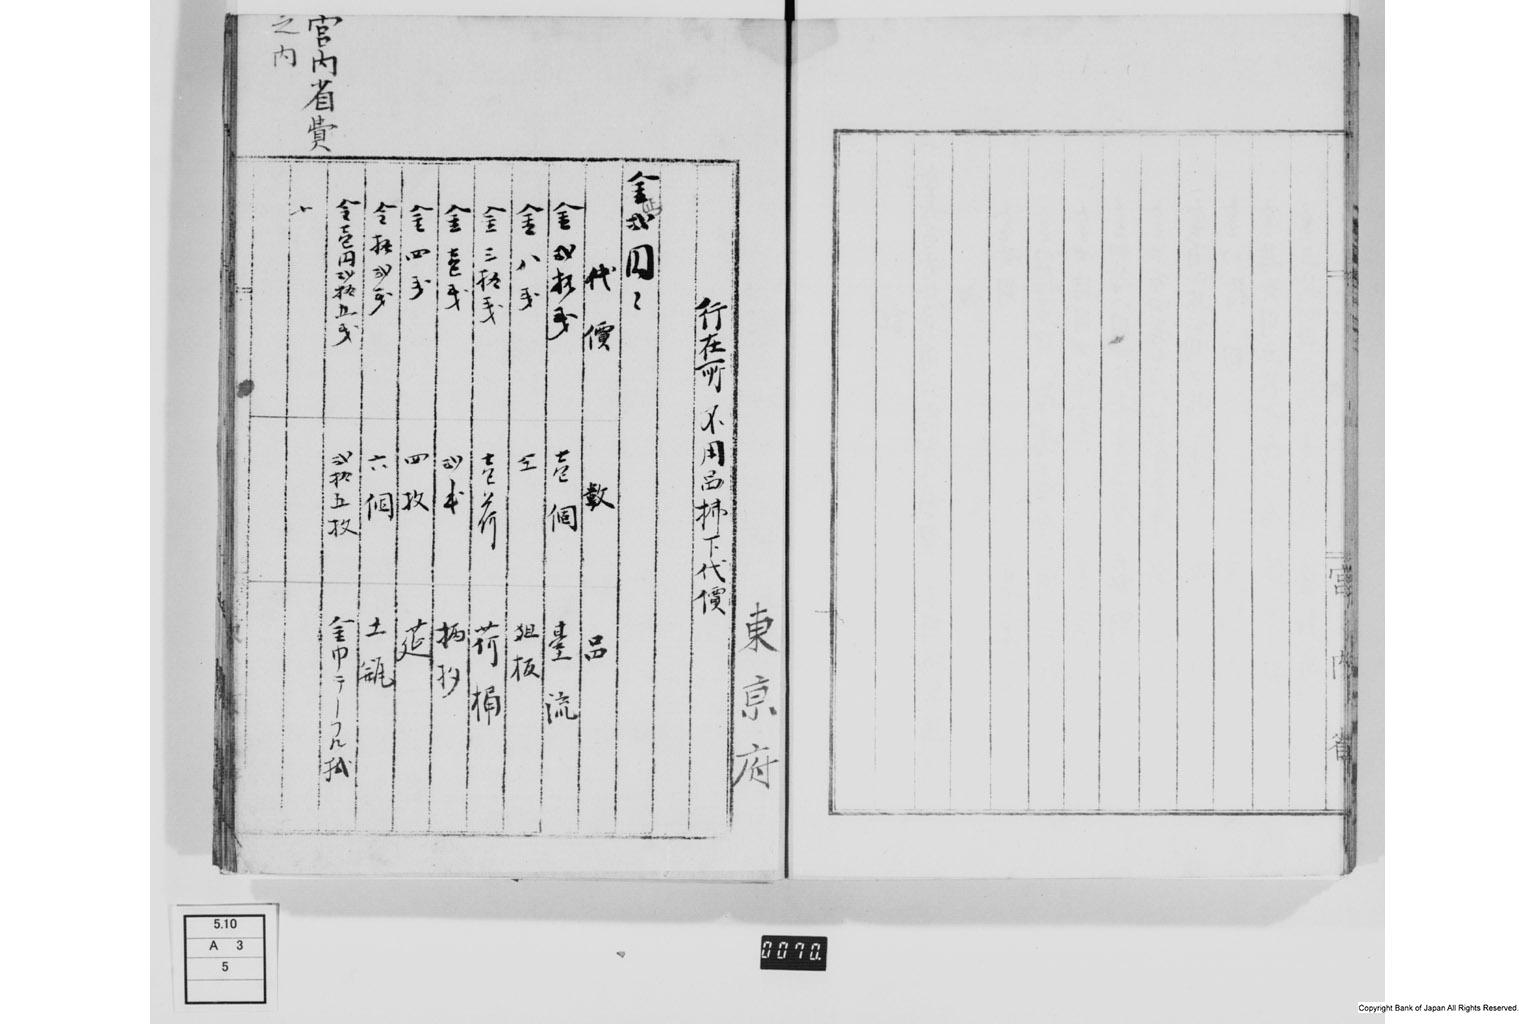 宮内省
東京府
行在所不用品拂下代價
金弐円
代價 數 品
金弐拾銭 壱個 臺流
金八銭 仝 俎板
金三拾銭 壱荷 荷桶
金壱銭 弐本 柄杓
金四銭 四枚 莚
金拾弐銭 六個 土瓶
金壱円弐拾五銭 弐拾五枚 金巾テーフル拭
宮内省費
之内
5.10
A 3
5
0070.
Copyright Bank of Japan All Rights Reserved.